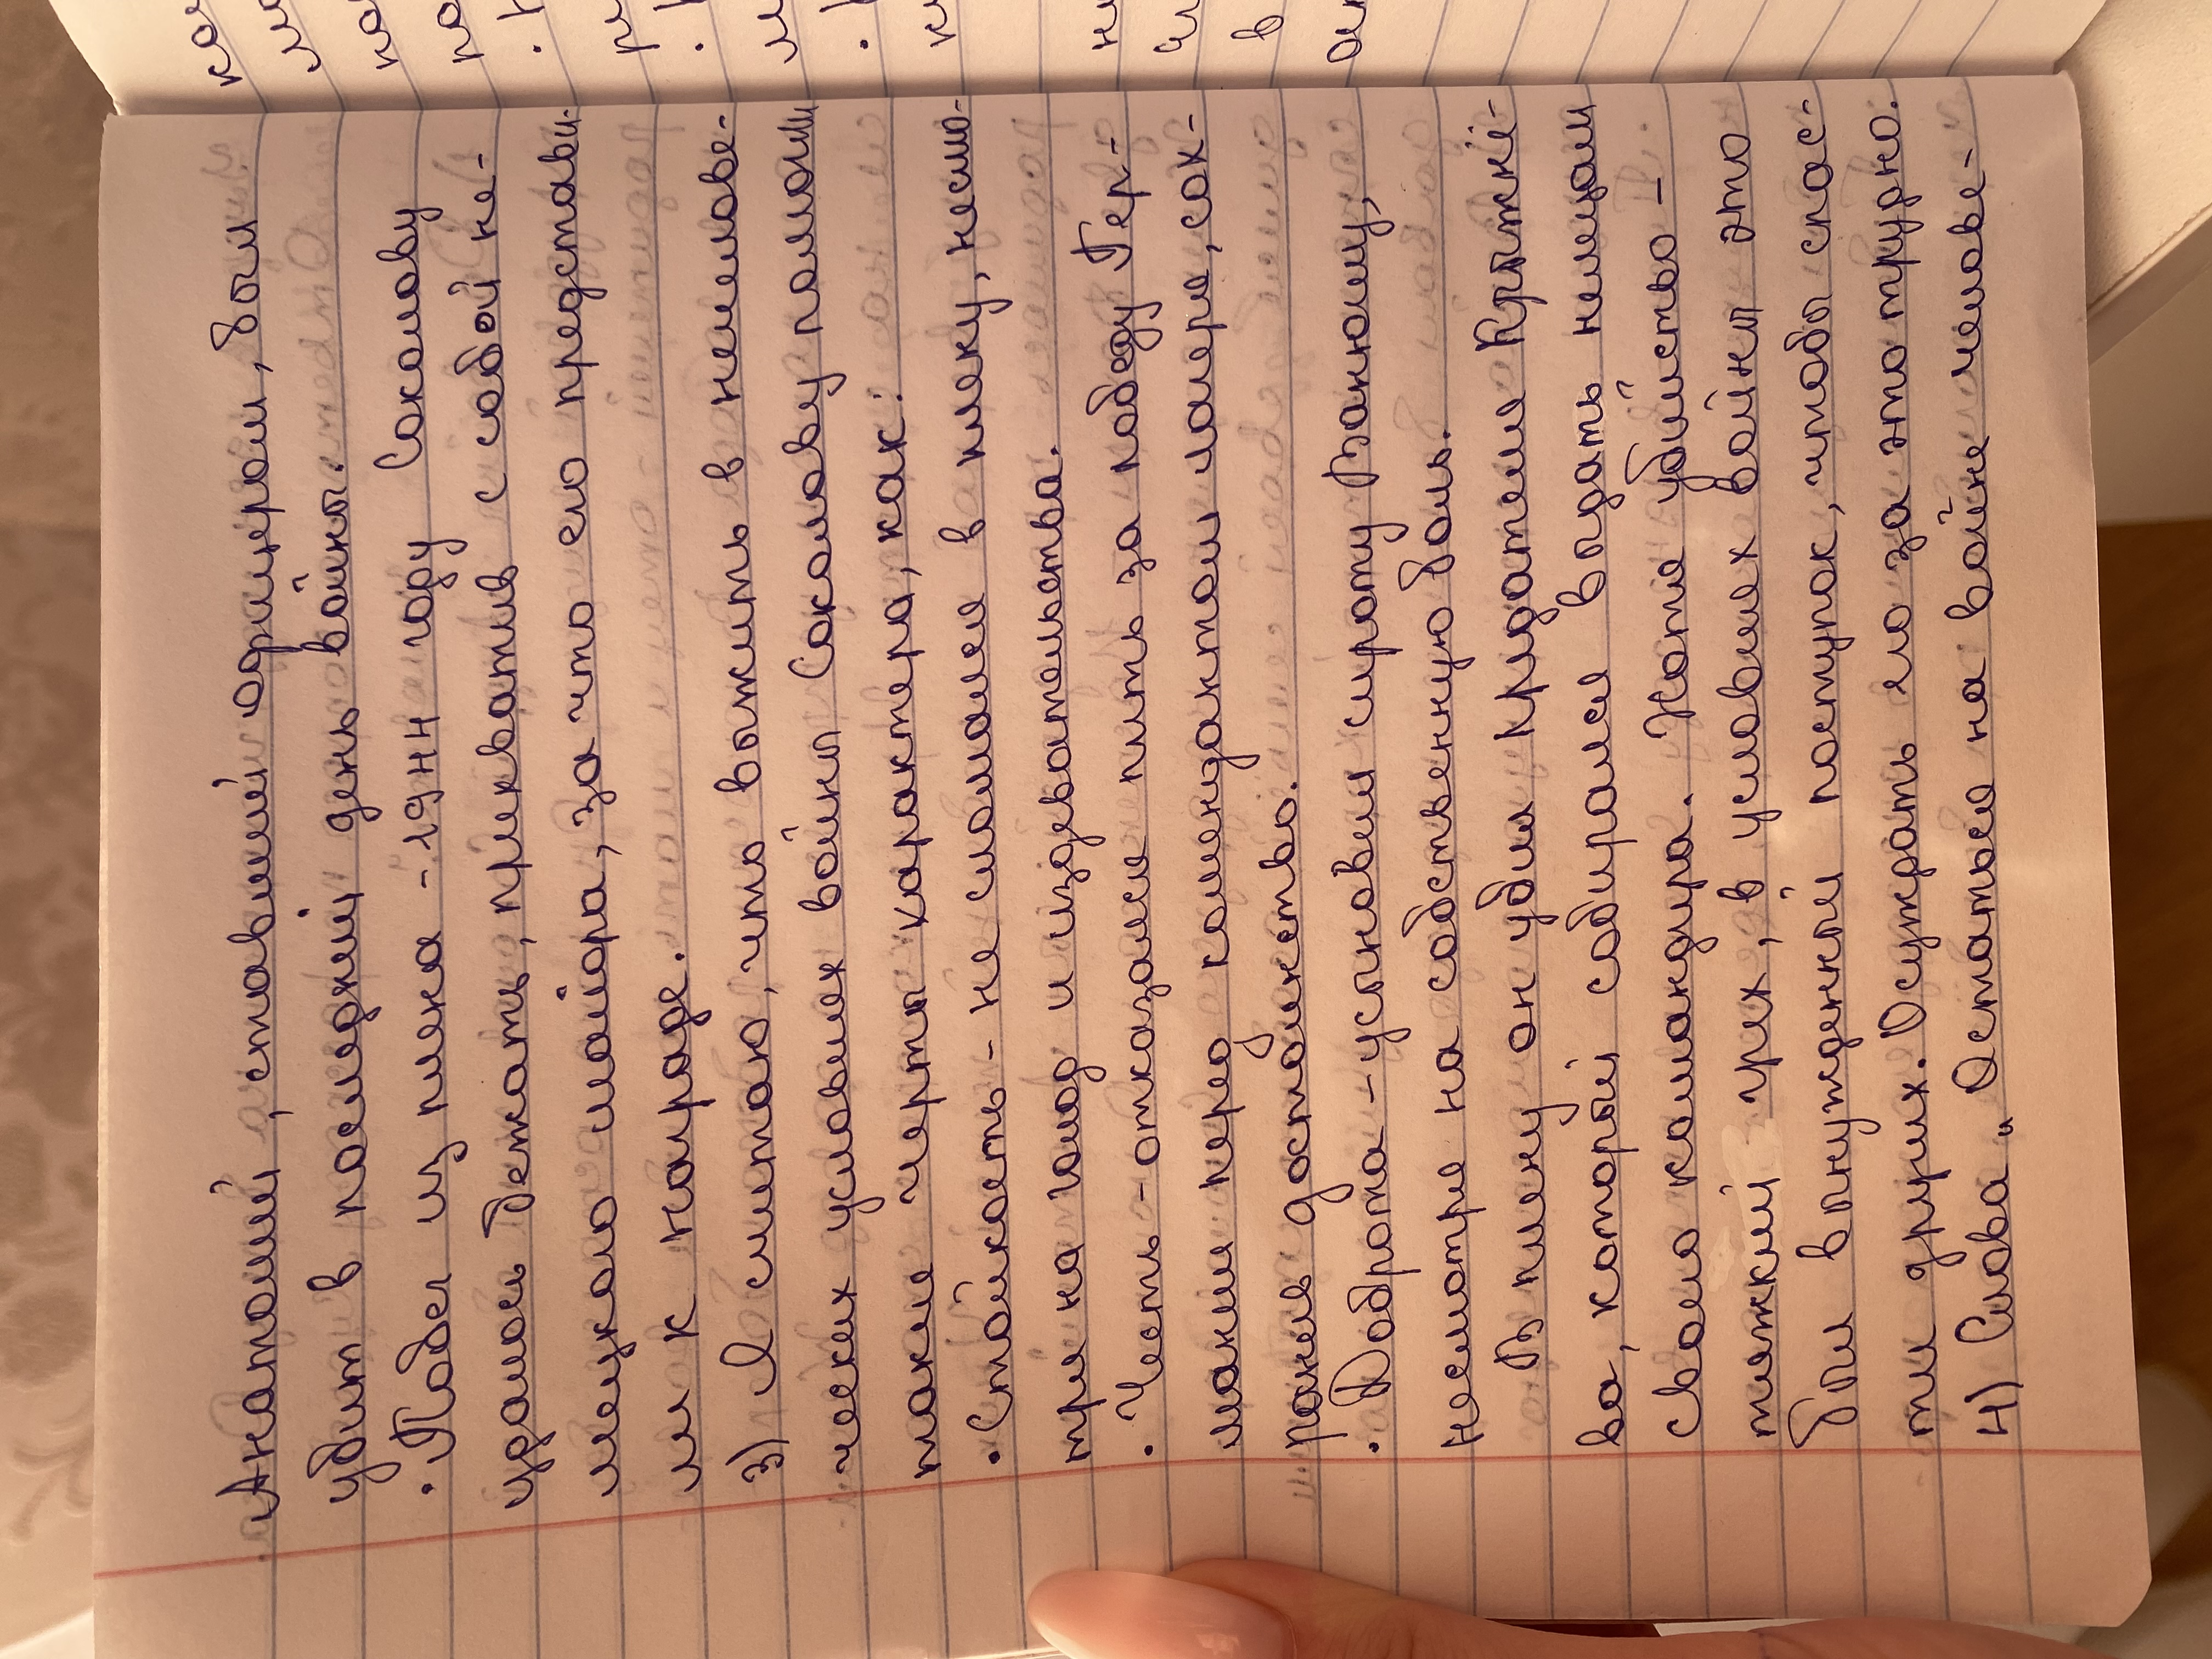 Анатолий, ставший офицером, был
убит в последний день войны.
• Побег из плена - 1944 году Соколову
удалось бежать, прихватив с собой не-
мецкого майора, за что его представи-
ли к награде.
3) Я считаю, что выжить в нечелове-
ческих условиях войны Соколову помогли
такие черты характера, как:
• Стойкость - не сломался в плену, несмо-
тря на голод и издевательства.
• Честь - отказался пить за победу Гер-
мании перед комендантом лагеря, сох-
ранив достоинство.
• Доброта - усыновил сироту Ванюшу,
несмотря на собственную боль.
В плену он убил предателя Крыжнё-
ва, который собирался выдать немцам
своего командира. Хотя убийство -
тяжкий грех, в условиях войны это
был вынужденный поступок, чтобы спас-
ти других. Осуждать его за это трудно.
4) Слова „Остаться на войне челове-